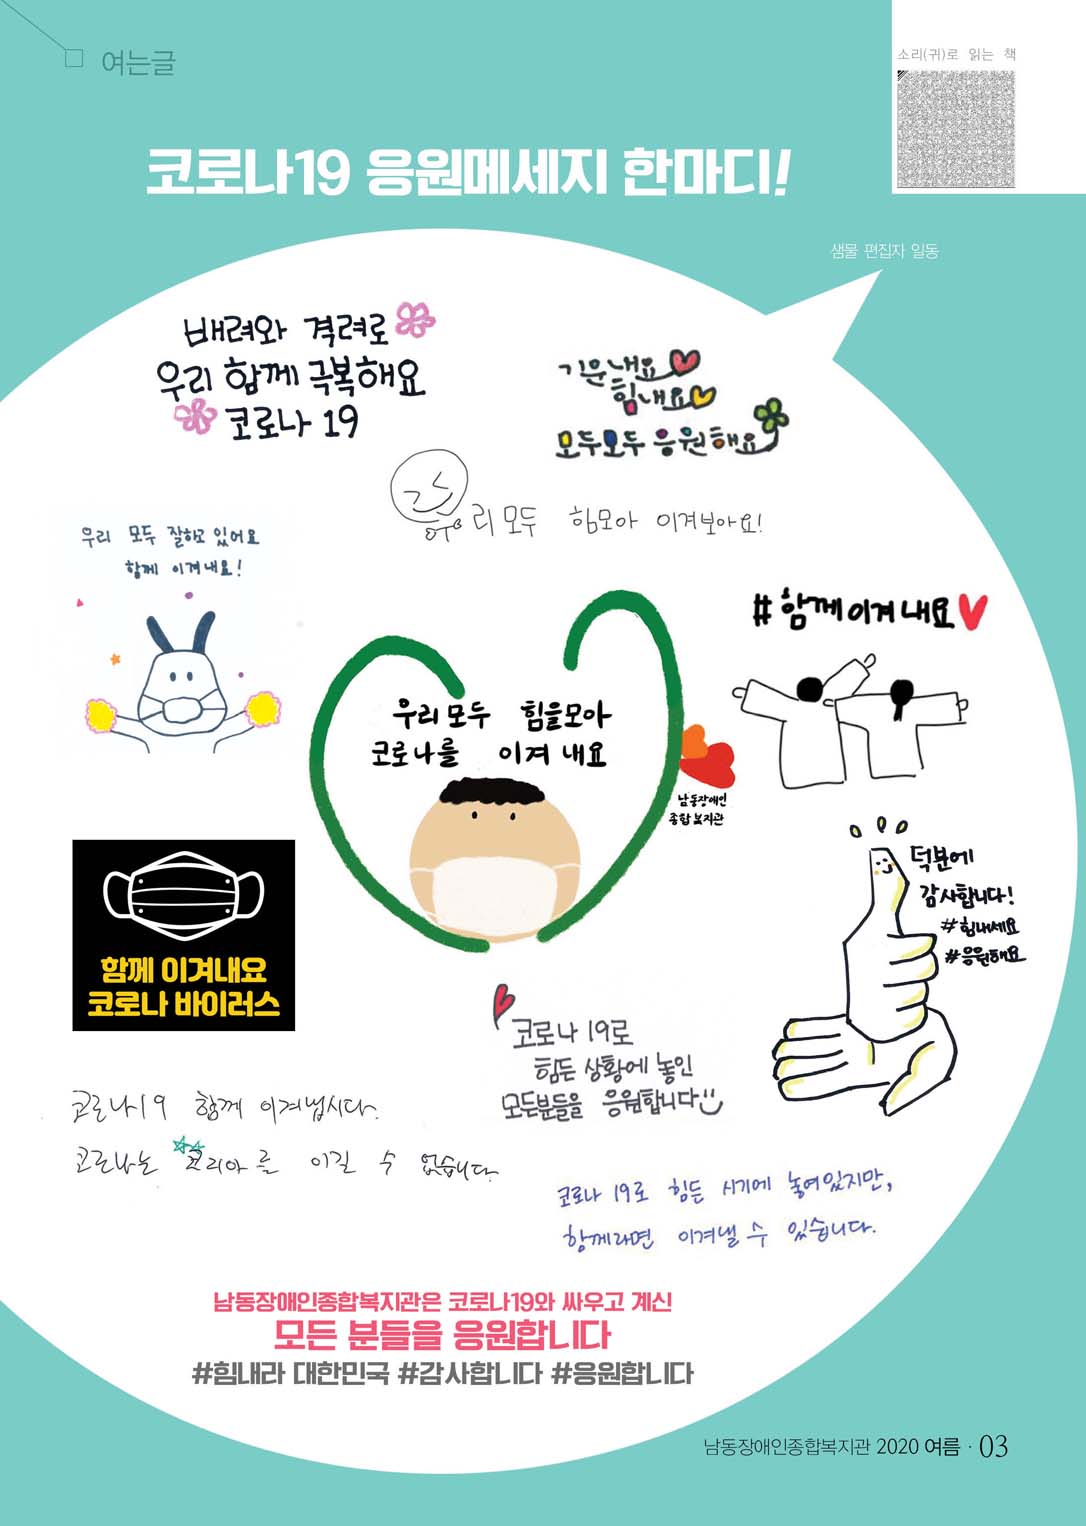 여는글
소리(귀)로 읽는 책
코로나19 응원메세지 한마디!
샘물 편집자 일동
배려와 격려로
우리 함께 극복해요
코로나 19
기운내요
힘내요
모두모두 응원해요
우리 모두 힘모아 이겨보아요!
우리 모두 잘하고 있어요
함께 이겨내요!
#함께이겨내요
우리모두 힘을모아
코로나를 이겨 내요
남동장애인
종합복지관
덕분에
감사합니다!
#힘내세요
#응원해요
함께 이겨내요
코로나 바이러스
코로나 19로
힘든 상황에 놓인
모든분들을 응원합니다
코로나19 함께 이겨냅시다.
코로나는 코리아를 이길 수 없습니다.
코로나 19로 힘든 시기에 놓여있지만,
함께라면 이겨낼 수 있습니다.
남동장애인종합복지관은 코로나19와 싸우고 계신
모든 분들을 응원합니다
#힘내라 대한민국 #감사합니다 #응원합니다
남동장애인종합복지관 2020 여름 · 03